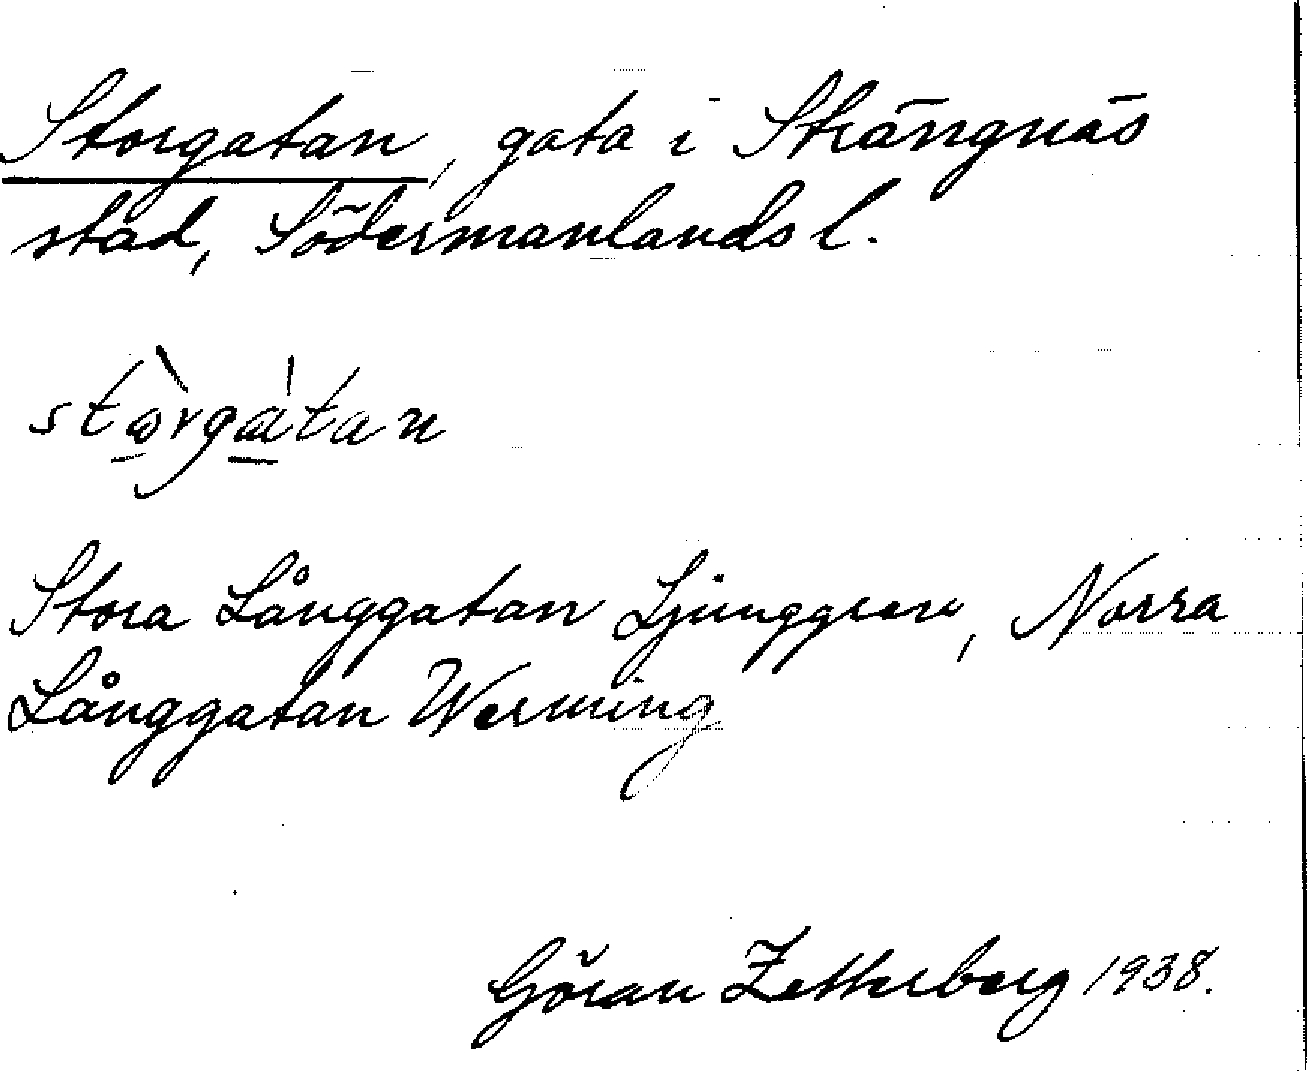 Storgatan, gata i Strängnäs
stad, Södermanlands l.
stòrgátan
Stora Långgatan Ljunggren, Norra
Långgatan Werming
Göran Zetterberg 1938.